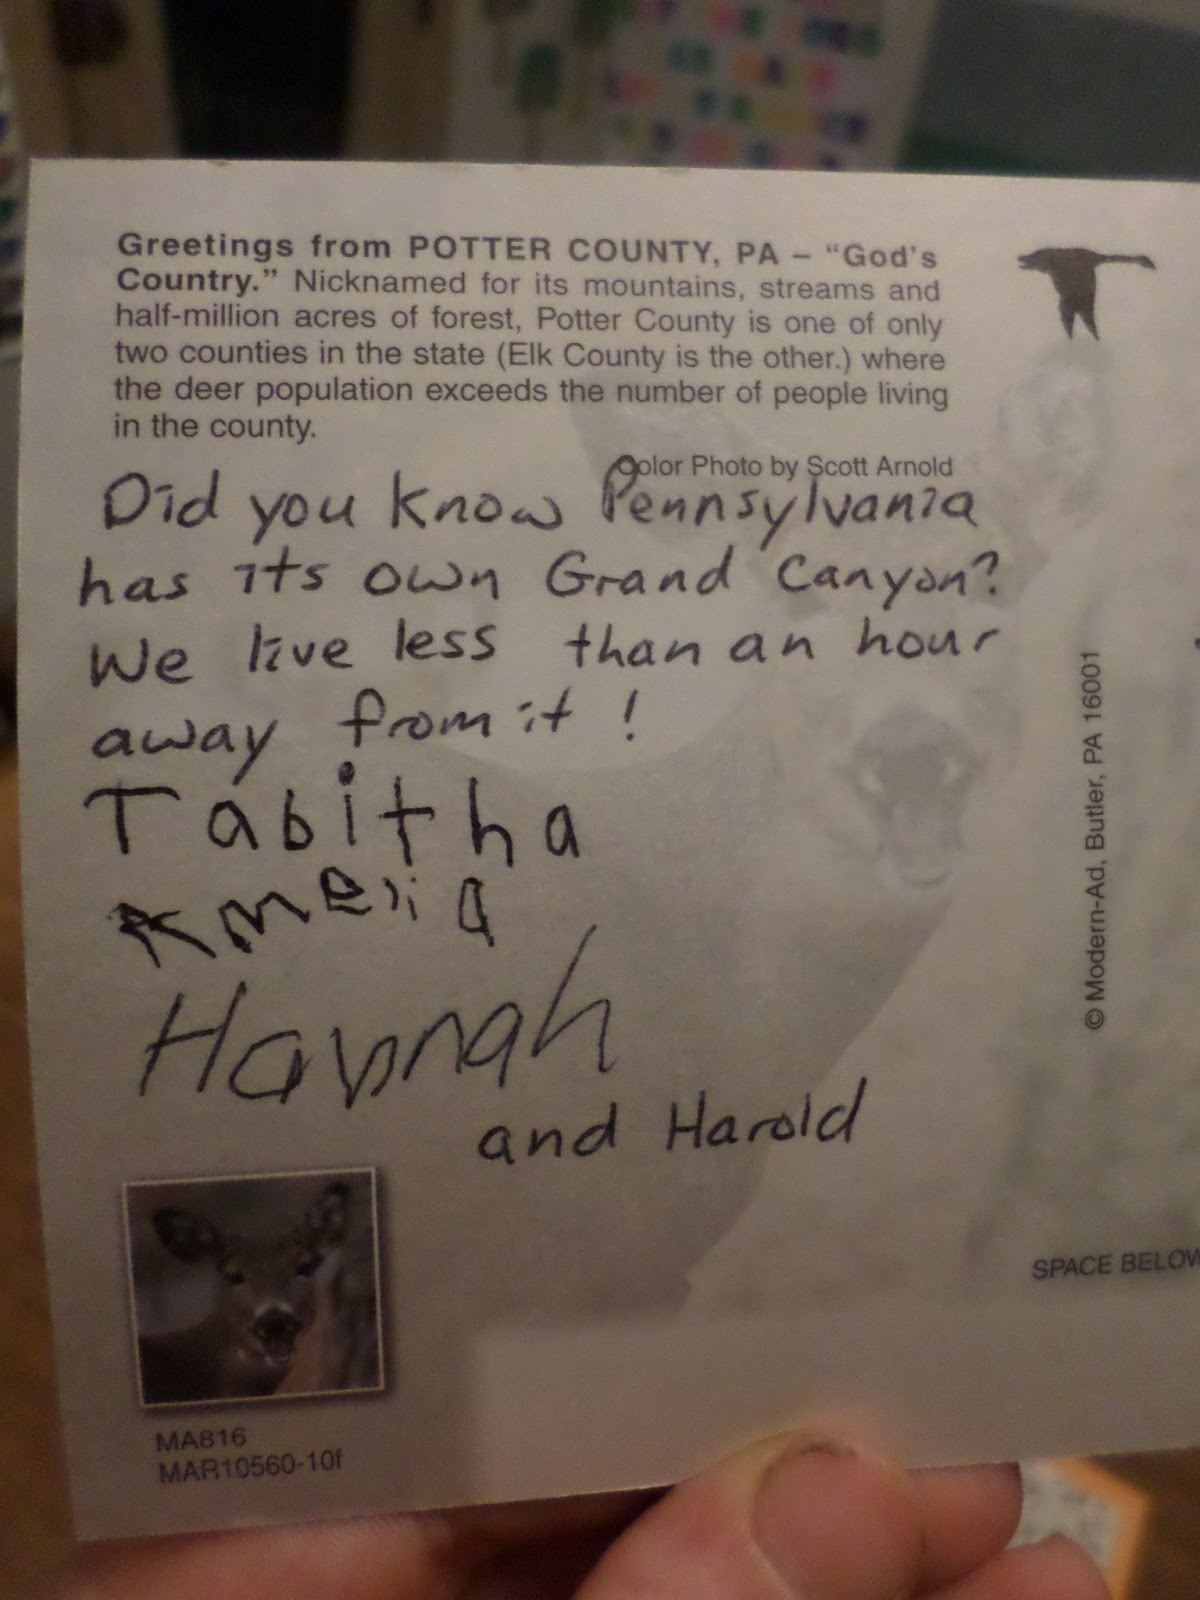 Greetings from POTTER COUNTY, PA – "God's
Country." Nicknamed for its mountains, streams and
half-million acres of forest, Potter County is one of only
two counties in the state (Elk County is the other.) where
the deer population exceeds the number of people living
in the county.
Color Photo by Scott Arnold
Did you know Pennsylvania
has its own Grand Canyon?
We live less than an hour
away from it!
Tabitha
Amelia
Hannah
and Harold
MA816
MAR10560-10f
© Modern-Ad, Butler, PA 16001
SPACE BELOW